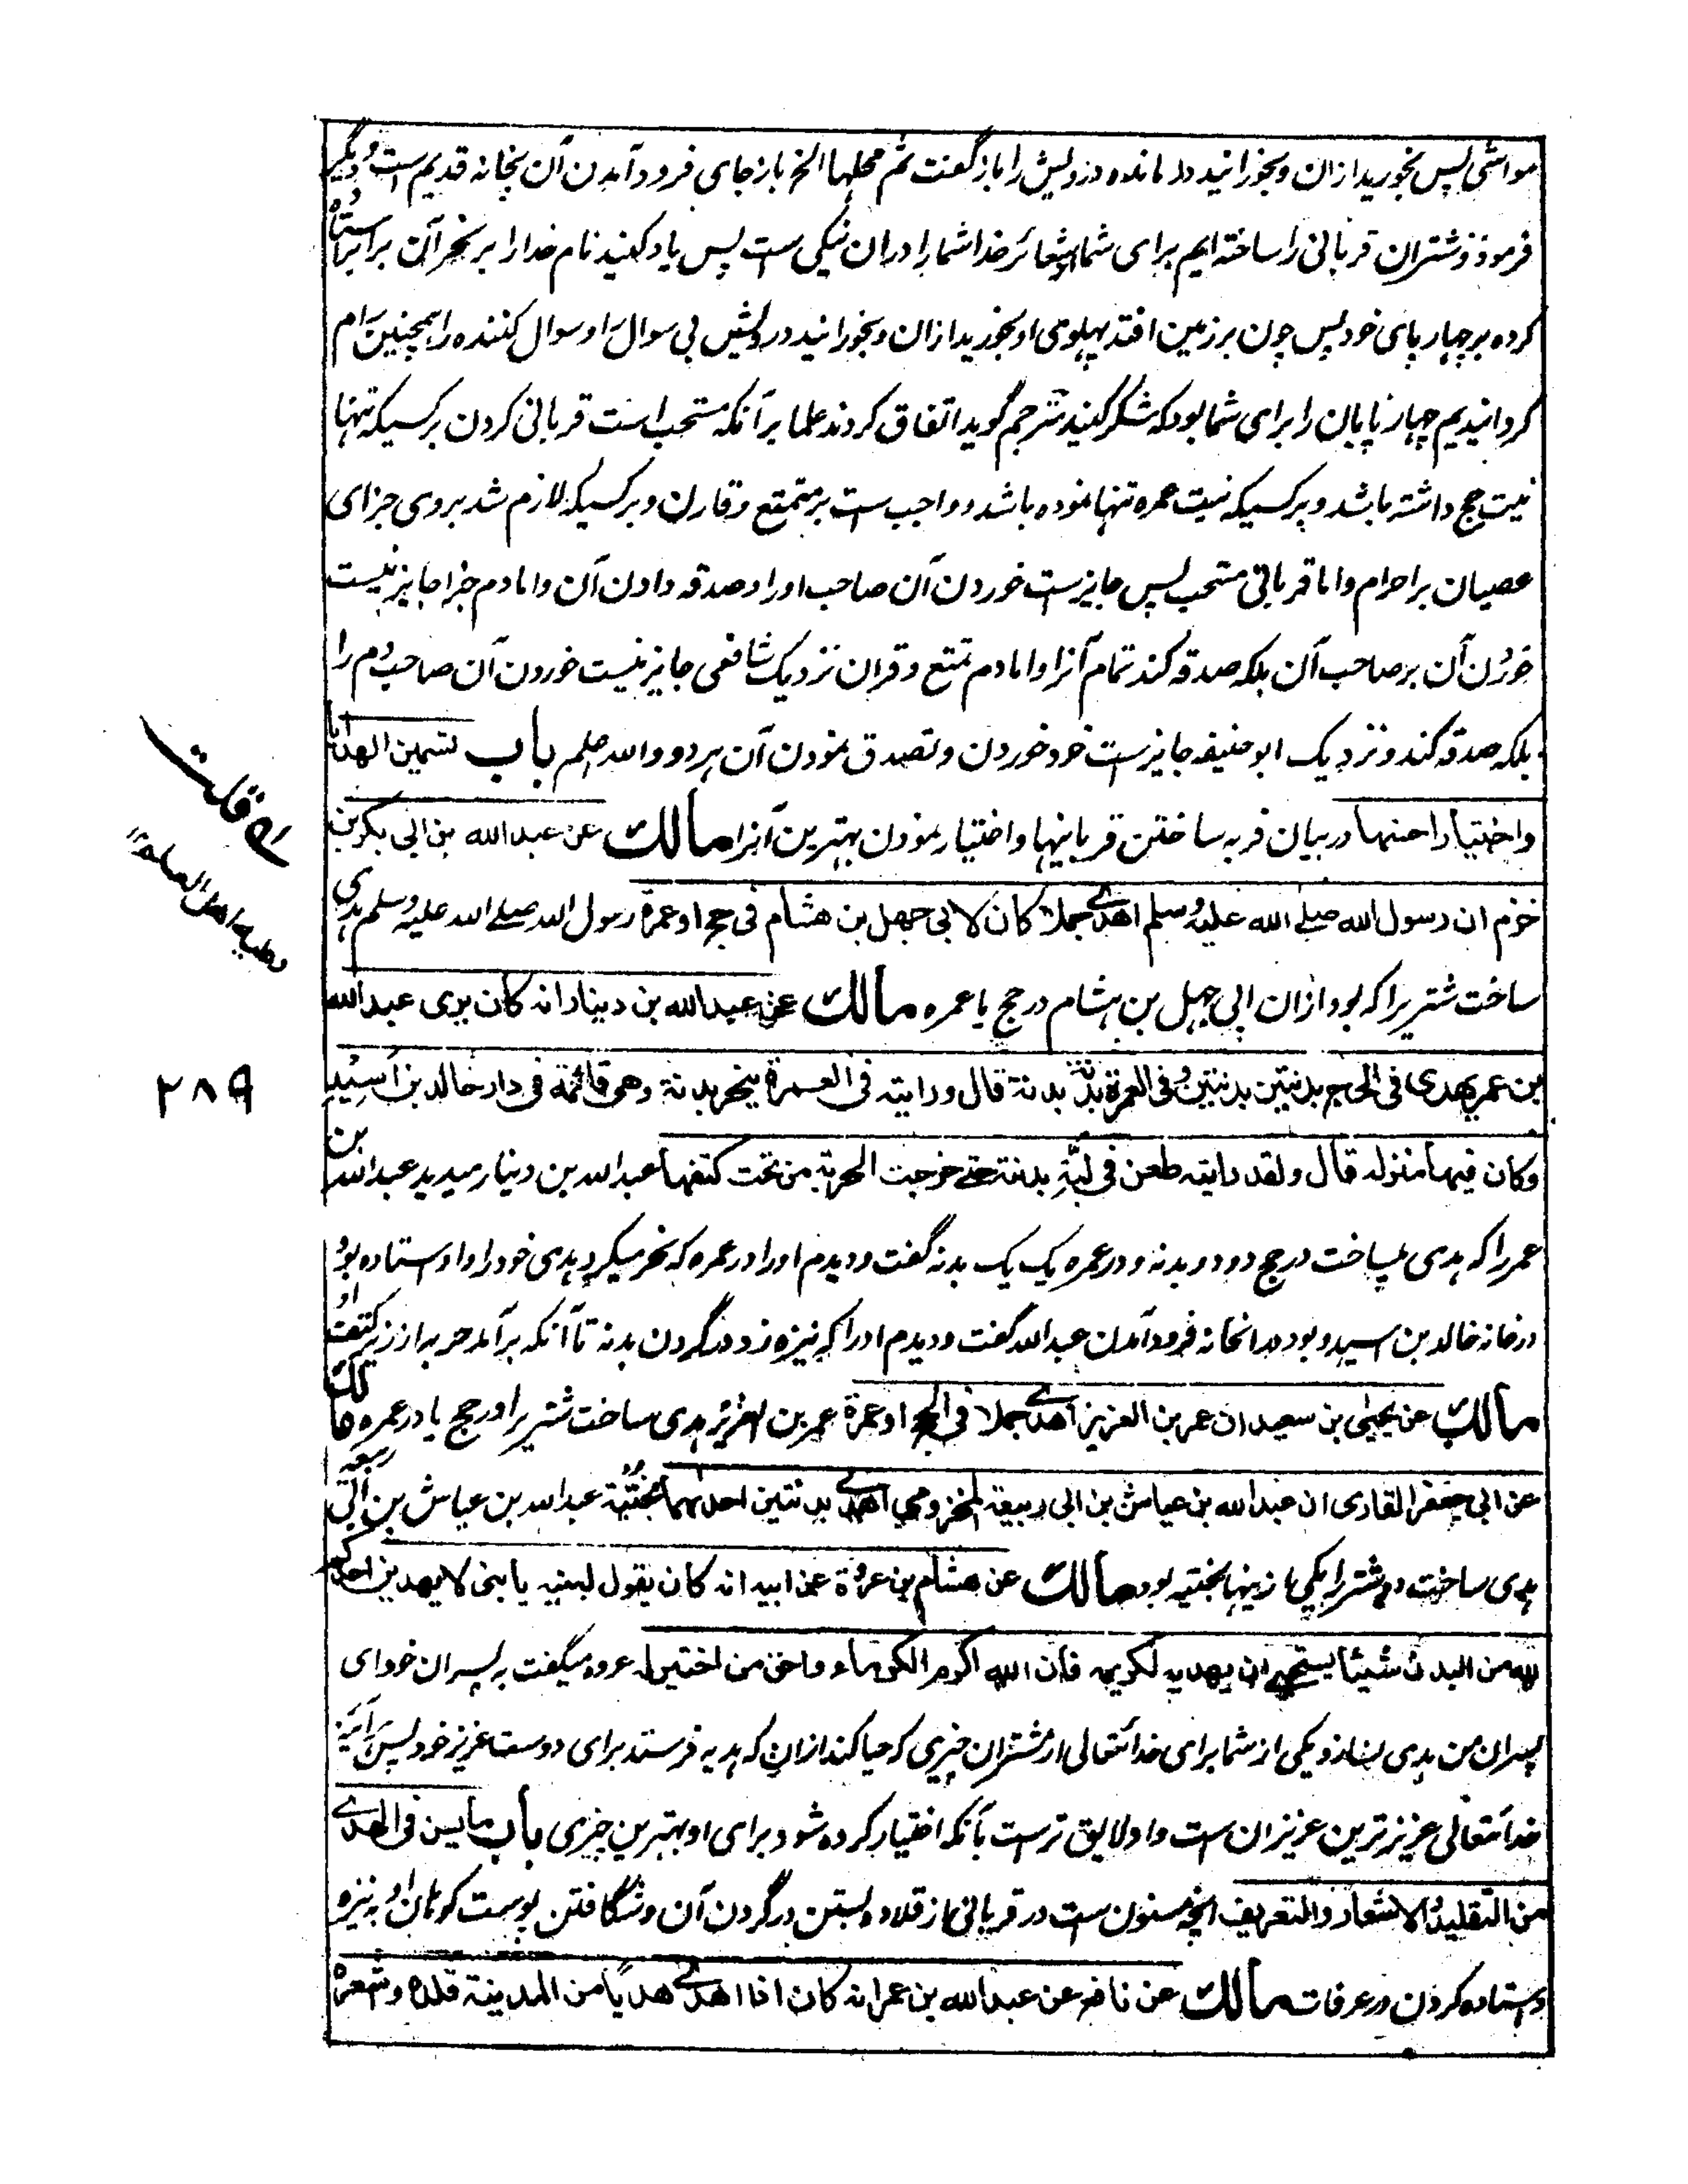 مواشی پس بخورید ازان وبخورانید در مانده درویش را باز گفت ثم محلها الخ باز جای فرود آمدن آن بخانه قدیم است ودیگر
فرمود وشتران قربانی را ساخته ایم برای شما از شعائر خدا شما را دران نیکی ست پس یاد کنید نام خدا را بر نحر آن برآ ستاده
کرده بر چهار پای خود پس چون بر زمین افتد پهلوی او بخورید ازان وبخورانید درویش بی سوال را وسوال کننده را همچنین رام
گردانیدیم چهار پایان را برای شما بود که شکر کنید مترجم گوید اتفاق کردند علما بر آنکه مستحب است قربانی کردن بر کسیکه تنها
نیت حج داشته باشد وبر کسیکه نیت عمره تنها نموده باشد وواجب ست بر متمتع وقارن وبر کسیکه لازم شد بروی جزای
عصیان بر احرام واما قربانی مستحب پس جایز ست خوردن آن صاحب او را وصدقه دادن آن واما دم جزا جایز نیست
خوردن آن بر صاحب آن بلکه صدقه کند تمام آنرا واما دم تمتع وقران نزدیک شافعی جایز نیست خوردن آن صاحب دم را
بلکه صدقه کند ونزدیک ابو حنیفه جایز ست خود خوردن وتصدق نمودن آن هر دو والله اعلم باب تسمین الهدایا
واختیار احسنها در بیان فربه ساختن قربانیها واختیار نمودن بهترین آنرا مالك عن عبد الله بن ابی بکر بن
حزم ان رسول الله صلے الله علیه وسلم اهدے جملا کان لابی جهل بن هشام فی حج او عمرة رسول الله صلے الله علیه وسلم هدی
ساخت شتریرا که بود ازان ابی جهل بن هشام در حج یا عمره مالك عن عبد الله بن دینار انه کان یری عبد الله
بن عمر یهدی فی الحج بدنتین بدنتین وفی العمرة بدنة بدنة قال ورایته فی العمرة ینحر بدنة وهی قائمة فی دار خالد بن اسید
وکان فیها منزله قال ولقد رایته طعن فی لبة بدنته حتے خرجت الحربة من تحت کتفها عبد الله بن دینار میدید عبد الله بن
عمر را که هدی میساخت در حج دو دو بدنه ودر عمره یک یک بدنه گفت ودیدم او را در عمره که نحر میکرد هدی خود را واو ستاده بود
در خانه خالد بن اسید وبود در انخانه فرود آمدن عبد الله گفت ودیدم او را که نیزه زد در گردن بدنه تا آنکه بر آمد حربه از زیر کتف او
مالك عن یحیی بن سعید ان عمر بن العزیز اهدے جملا فی الحج او عمرة عمر بن العزیز هدی ساخت شتریرا در حج یا در عمره مالك
عن ابی جعفر القاری ان عبد الله بن عیاش بن ابی ربیعة المخزومی اهدے بدنتین احدٰهما بختیة عبد الله بن عیاش بن ابی ربیعه
هدی ساخت دو شتر را یکی از ینها بختیه بود مالك عن هشام بن عروة عن ابیه انه کان یقول لبنیه یا بنی لا یهدین احدکم
لله من البدن شیئا یستحیے ان یهدیه لکریمه فان الله اکرم الکرماء واحق من اختیر له عروه میگفت به پسران خود ای
پسران من هدی نسازد یکی از شما برای خدا تعالی از شتران چیزی که حیا کند ازان که هدیه فرستد برای دوست عزیز خود پس هر آئینه
خدا تعالی عزیز ترین عزیزان ست واو لایق تر ست بآنکه اختیار کرده شود برای او بهترین چیزی باب ما یسن فی الهدے
من التقلید والاشعار والتعریف انچه مسنون ست در قربانی از قلاده بستن در گردن آن وشگافتن پوست کوهان او به نیزه
وستاده کردن در عرفات مالك عن نافع عن عبد الله بن عمر انه کان اذا اهدے هدیا من المدینة قلده واشعره
قلت
٢٨٩